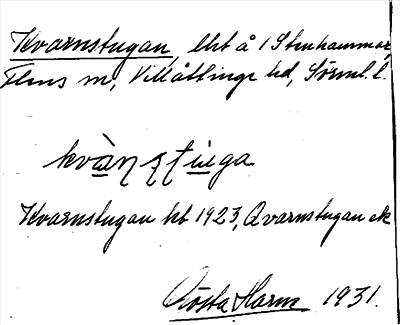 Kvarnstugan, lht å 1 Stenhammar,
Flens sn, Villåttinge hd, Sörml. l.
kvàṇʂtuga
Kvarnstugan kb 1923, Qvarnstugan ek
Gösta Harm 1931.